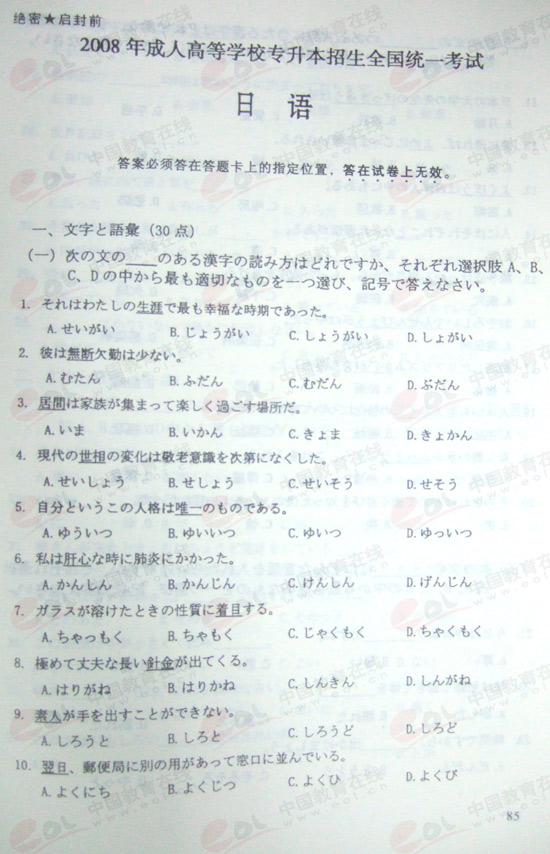 绝密★启封前
2008 年成人高等学校专升本招生全国统一考试
日 语
答案必须答在答题卡上的指定位置，答在试卷上无效。
一、文字と語彙（30 点）
(一) 次の文の____のある漢字の読み方はどれですか、それぞれ選択肢 A、B、
C、D の中から最も適切なものを一つ選び、記号で答えなさい。
1. それはわたしの生涯で最も幸福な時期であった。
A. せいがい B. じょうがい C. しょうがい D. しょがい
2. 彼は無断欠勤は少ない。
A. むたん B. ふだん C. むだん D. ぶだん
3. 居間は家族が集まって楽しく過ごす場所だ。
A. いま B. いかん C. きょま D. きょかん
4. 現代の世相の変化は敬老意識を次第になくした。
A. せいしょう B. せしょう C. せいそう D. せそう
5. 自分というこの人格は唯一のものである。
A. ゆういつ B. ゆいいつ C. ゆいつ D. ゆっいつ
6. 私は肝心な時に肺炎にかかった。
A. かんしん B. かんじん C. けんしん D. げんじん
7. ガラスが溶けたときの性質に着目する。
A. ちゃっもく B. ちゃもく C. じゃくもく D. ちゃくもく
8. 極めて丈夫な長い針金が出てくる。
A. はりがね B. はりかね C. しんきん D. しんがね
9. 素人が手を出すことができない。
A. しろうと B. しろと C. しろうど D. しろど
10. 翌日、郵便局に別の用があって窓口に並んでいる。
A. よくにち B. よくじつ C. よくひ D. よくび
85
中国教育在线
eol